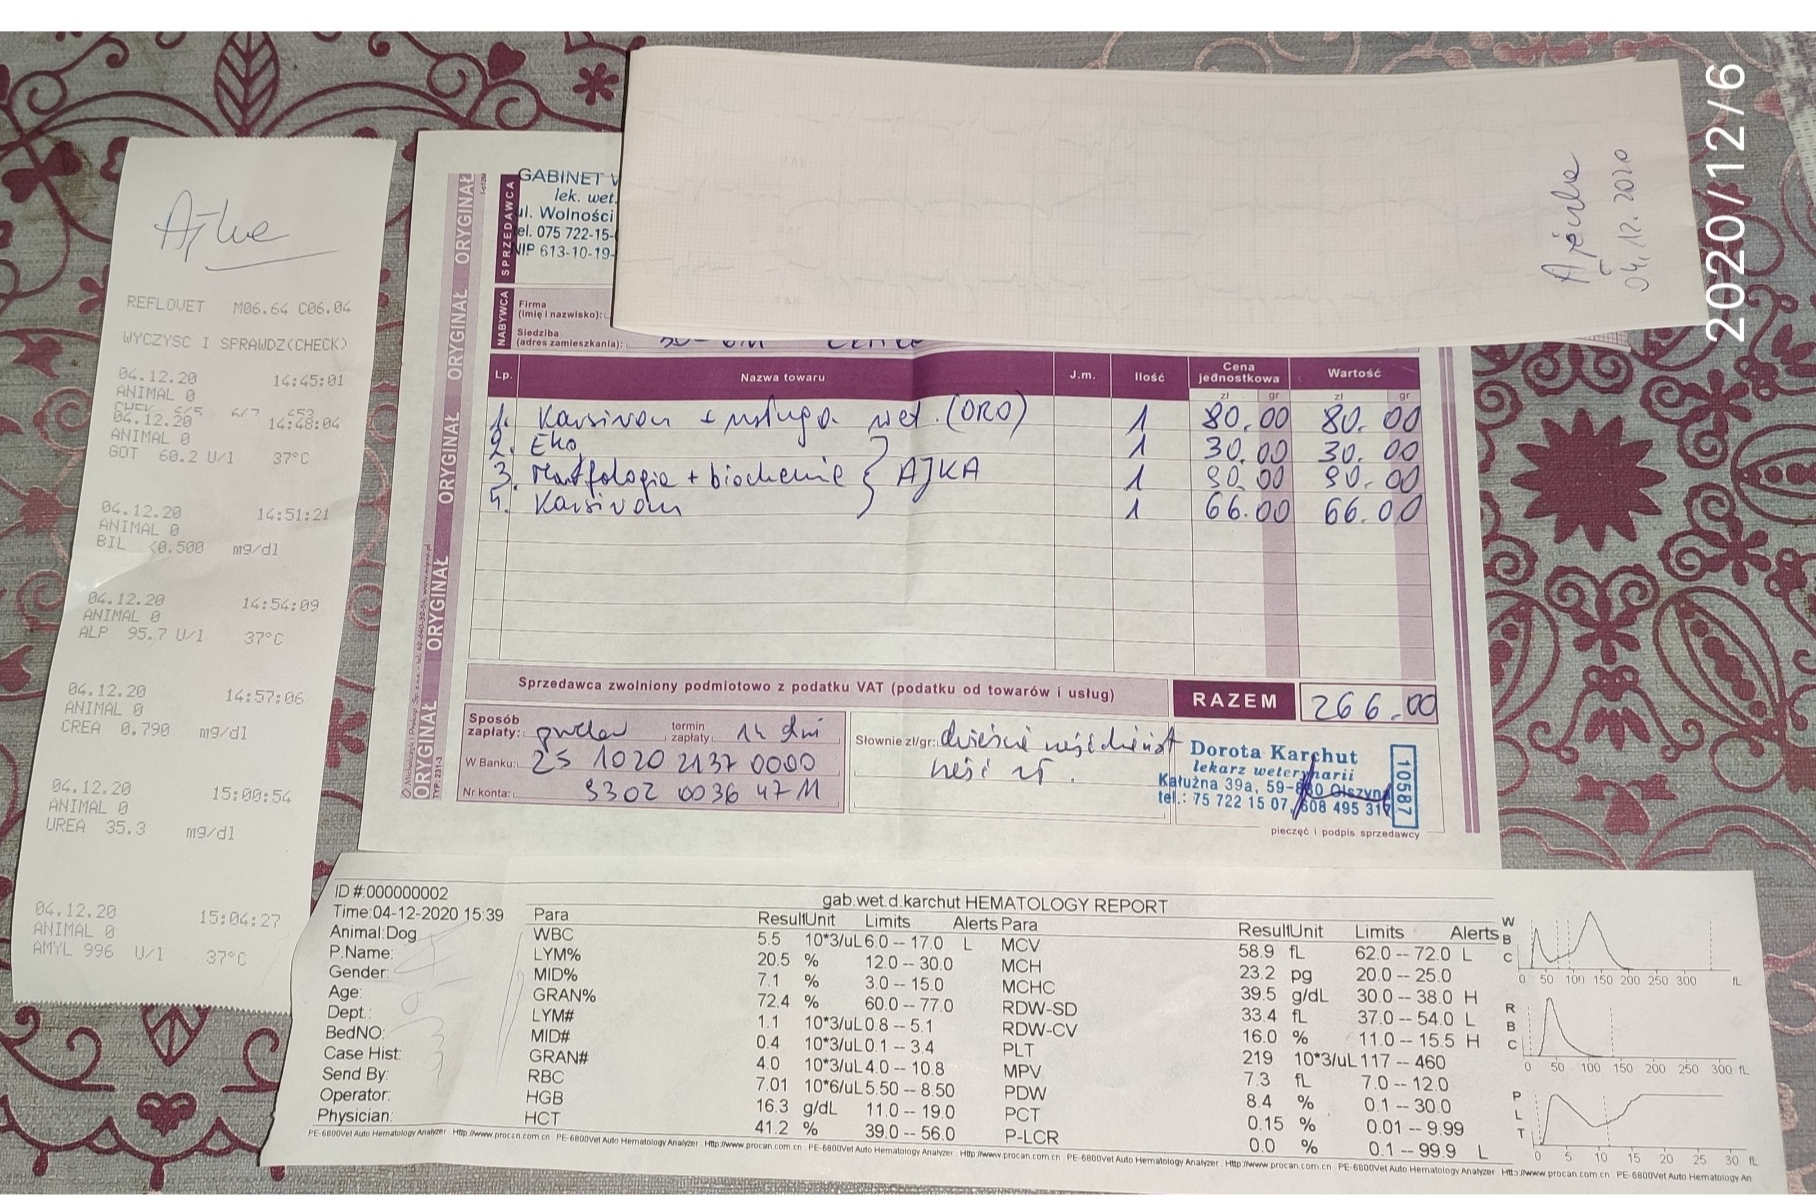 2020/12/6
04.12.2020
Ajka
REFLOVET M06.64 C06.04
WYCZYSC I SPRAWDZ(CHECK)
04.12.20 14:45:01
ANIMAL 0
04.12.20 14:48:04
ANIMAL 0
GOT 60.2 U/l 37°C
04.12.20 14:51:21
ANIMAL 0
BIL <0.500 mg/dl
04.12.20 14:54:09
ANIMAL 0
ALP 95.7 U/l 37°C
04.12.20 14:57:06
ANIMAL 0
CREA 0.790 mg/dl
04.12.20 15:00:54
ANIMAL 0
UREA 35.3 mg/dl
04.12.20 15:04:27
ANIMAL 0
AMYL 996 U/l 37°C
ORYGINAŁ ORYGINAŁ ORYGINAŁ ORYGINAŁ ORYGINAŁ ORYGINAŁ
TYP: 231-3
SPRZEDAWCA
GABINET
lek. wet.
ul. Wolności
tel. 075 722-15-
NIP 613-10-19-
NABYWCA
Firma
(imię i nazwisko):
Siedziba
(adres zamieszkania):
Lp. Nazwa towaru J.m. Ilość Cena jednostkowa Wartość
zł gr zł gr
1. Karsivan + usługa wet. (ORO) 1 80.00 80.00
2. Eko 1 30.00 30.00
3. Morfologia + biochemie AJKA 1 90.00 90.00
4. Karsivan 1 66.00 66.00
Sprzedawca zwolniony podmiotowo z podatku VAT (podatku od towarów i usług)
RAZEM 266.00
Sposób zapłaty: przelew termin zapłaty 14 dni
W Banku: 25 1020 2137 0000
Nr konta: 9302 0036 4711
Słownie zł/gr: dwieście sześćdziesiąt
sześć zł.
Dorota Karchut
lekarz weterynarii
Kałużna 39a, 59-830 Olszyna
tel.: 75 722 15 07, 608 495 317
10587
pieczęć i podpis sprzedawcy
gab.wet.d.karchut HEMATOLOGY REPORT
ID #:000000002
Time:04-12-2020 15:39
Animal:Dog
P.Name:
Gender:
Age:
Dept.:
BedNO:
Case Hist:
Send By:
Operator:
Physician:
Para Result Unit Limits Alerts
WBC 5.5 10*3/uL 6.0 -- 17.0 L
LYM% 20.5 % 12.0 -- 30.0
MID% 7.1 % 3.0 -- 15.0
GRAN% 72.4 % 60.0 -- 77.0
LYM# 1.1 10*3/uL 0.8 -- 5.1
MID# 0.4 10*3/uL 0.1 -- 3.4
GRAN# 4.0 10*3/uL 4.0 -- 10.8
RBC 7.01 10*6/uL 5.50 -- 8.50
HGB 16.3 g/dL 11.0 -- 19.0
HCT 41.2 % 39.0 -- 56.0
Para Result Unit Limits Alerts
MCV 58.9 fL 62.0 -- 72.0 L
MCH 23.2 pg 20.0 -- 25.0
MCHC 39.5 g/dL 30.0 -- 38.0 H
RDW-SD 33.4 fL 37.0 -- 54.0 L
RDW-CV 16.0 % 11.0 -- 15.5 H
PLT 219 10*3/uL 117 -- 460
MPV 7.3 fL 7.0 -- 12.0
PDW 8.4 % 0.1 -- 30.0
PCT 0.15 % 0.01 -- 9.99
P-LCR 0.0 % 0.1 -- 99.9 L
WBC
0 50 100 150 200 250 300 fL
RBC
0 50 100 150 200 250 300 fL
PLT
0 5 10 15 20 25 30 fL
PE-6800Vet Auto Hematology Analyzer Http://www.procan.com.cn PE-6800Vet Auto Hematology Analyzer Http://www.procan.com.cn PE-6800Vet Auto Hematology Analyzer Http://www.procan.com.cn PE-6800Vet Auto Hematology Analyzer Http://www.procan.com.cn PE-6800Vet Auto Hematology Analyzer Http://www.procan.com.cn PE-6800Vet Auto Hematology An